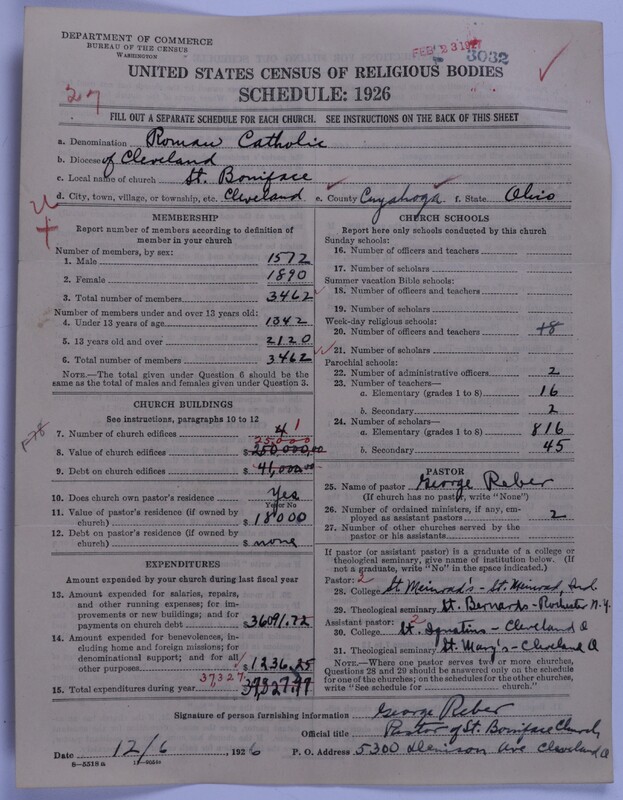 DEPARTMENT OF COMMERCE
BUREAU OF THE CENSUS
WASHINGTON
FEB 23 1927
3032
UNITED STATES CENSUS OF RELIGIOUS BODIES
SCHEDULE: 1926
27
FILL OUT A SEPARATE SCHEDULE FOR EACH CHURCH. SEE INSTRUCTIONS ON THE BACK OF THIS SHEET
a. Denomination Roman Catholic
b. Diocese of Cleveland
c. Local name of church St. Boniface
d. City, town, village, or township, etc. Cleveland e. County Cuyahoga f. State Ohio
MEMBERSHIP
Report number of members according to definition of
member in your church
Number of members, by sex:
1. Male 1572
2. Female 1890
3. Total number of members 3462
Number of members under and over 13 years old:
4. Under 13 years of age 1342
5. 13 years old and over 2120
6. Total number of members 3462
NOTE.—The total given under Question 6 should be the
same as the total of males and females given under Question 3.
CHURCH BUILDINGS
See instructions, paragraphs 10 to 12
7. Number of church edifices 4 1
25,000
8. Value of church edifices $250,000.00
9. Debt on church edifices $41,000.00
10. Does church own pastor's residence Yes
Yes or No
11. Value of pastor's residence (if owned by
church) $18000
12. Debt on pastor's residence (if owned by
church) $none
EXPENDITURES
Amount expended by your church during last fiscal year
13. Amount expended for salaries, repairs,
and other running expenses; for im-
provements or new buildings; and for
payments on church debt $36091.72
14. Amount expended for benevolences, in-
cluding home and foreign missions; for
denominational support; and for all
other purposes $1236.25
37327
15. Total expenditures during year
CHURCH SCHOOLS
Report here only schools conducted by this church
Sunday schools:
16. Number of officers and teachers
17. Number of scholars
Summer vacation Bible schools:
18. Number of officers and teachers
19. Number of scholars
Week-day religious schools:
20. Number of officers and teachers 18
21. Number of scholars
Parochial schools:
22. Number of administrative officers 2
23. Number of teachers—
a. Elementary (grades 1 to 8) 16
b. Secondary 2
24. Number of scholars—
a. Elementary (grades 1 to 8) 816
b. Secondary 45
PASTOR
25. Name of pastor George Reber
(If church has no pastor, write "None")
26. Number of ordained ministers, if any, em-
ployed as assistant pastors 2
27. Number of other churches served by the
pastor or his assistants
If pastor (or assistant pastor) is a graduate of a college or
theological seminary, give name of institution below. (If
not a graduate, write "No" in the space indicated.)
Pastor: 2
28. College St. Meinrad's - St. Meinrad, Ind.
29. Theological seminary St. Bernards - Rochester N.Y.
Assistant pastor: 2
30. College St. Ignatius - Cleveland O
31. Theological seminary St. Mary's - Cleveland O
NOTE.—Where one pastor serves two or more churches,
Questions 28 and 29 should be answered only on the schedule
for one of the churches; on the schedules for the other churches,
write "See schedule for church."
Signature of person furnishing information George Reber
Official title Pastor of St. Boniface Church
Date 12/6, 1926 P. O. Address 5300 Denison Ave Cleveland O
8—5518 a